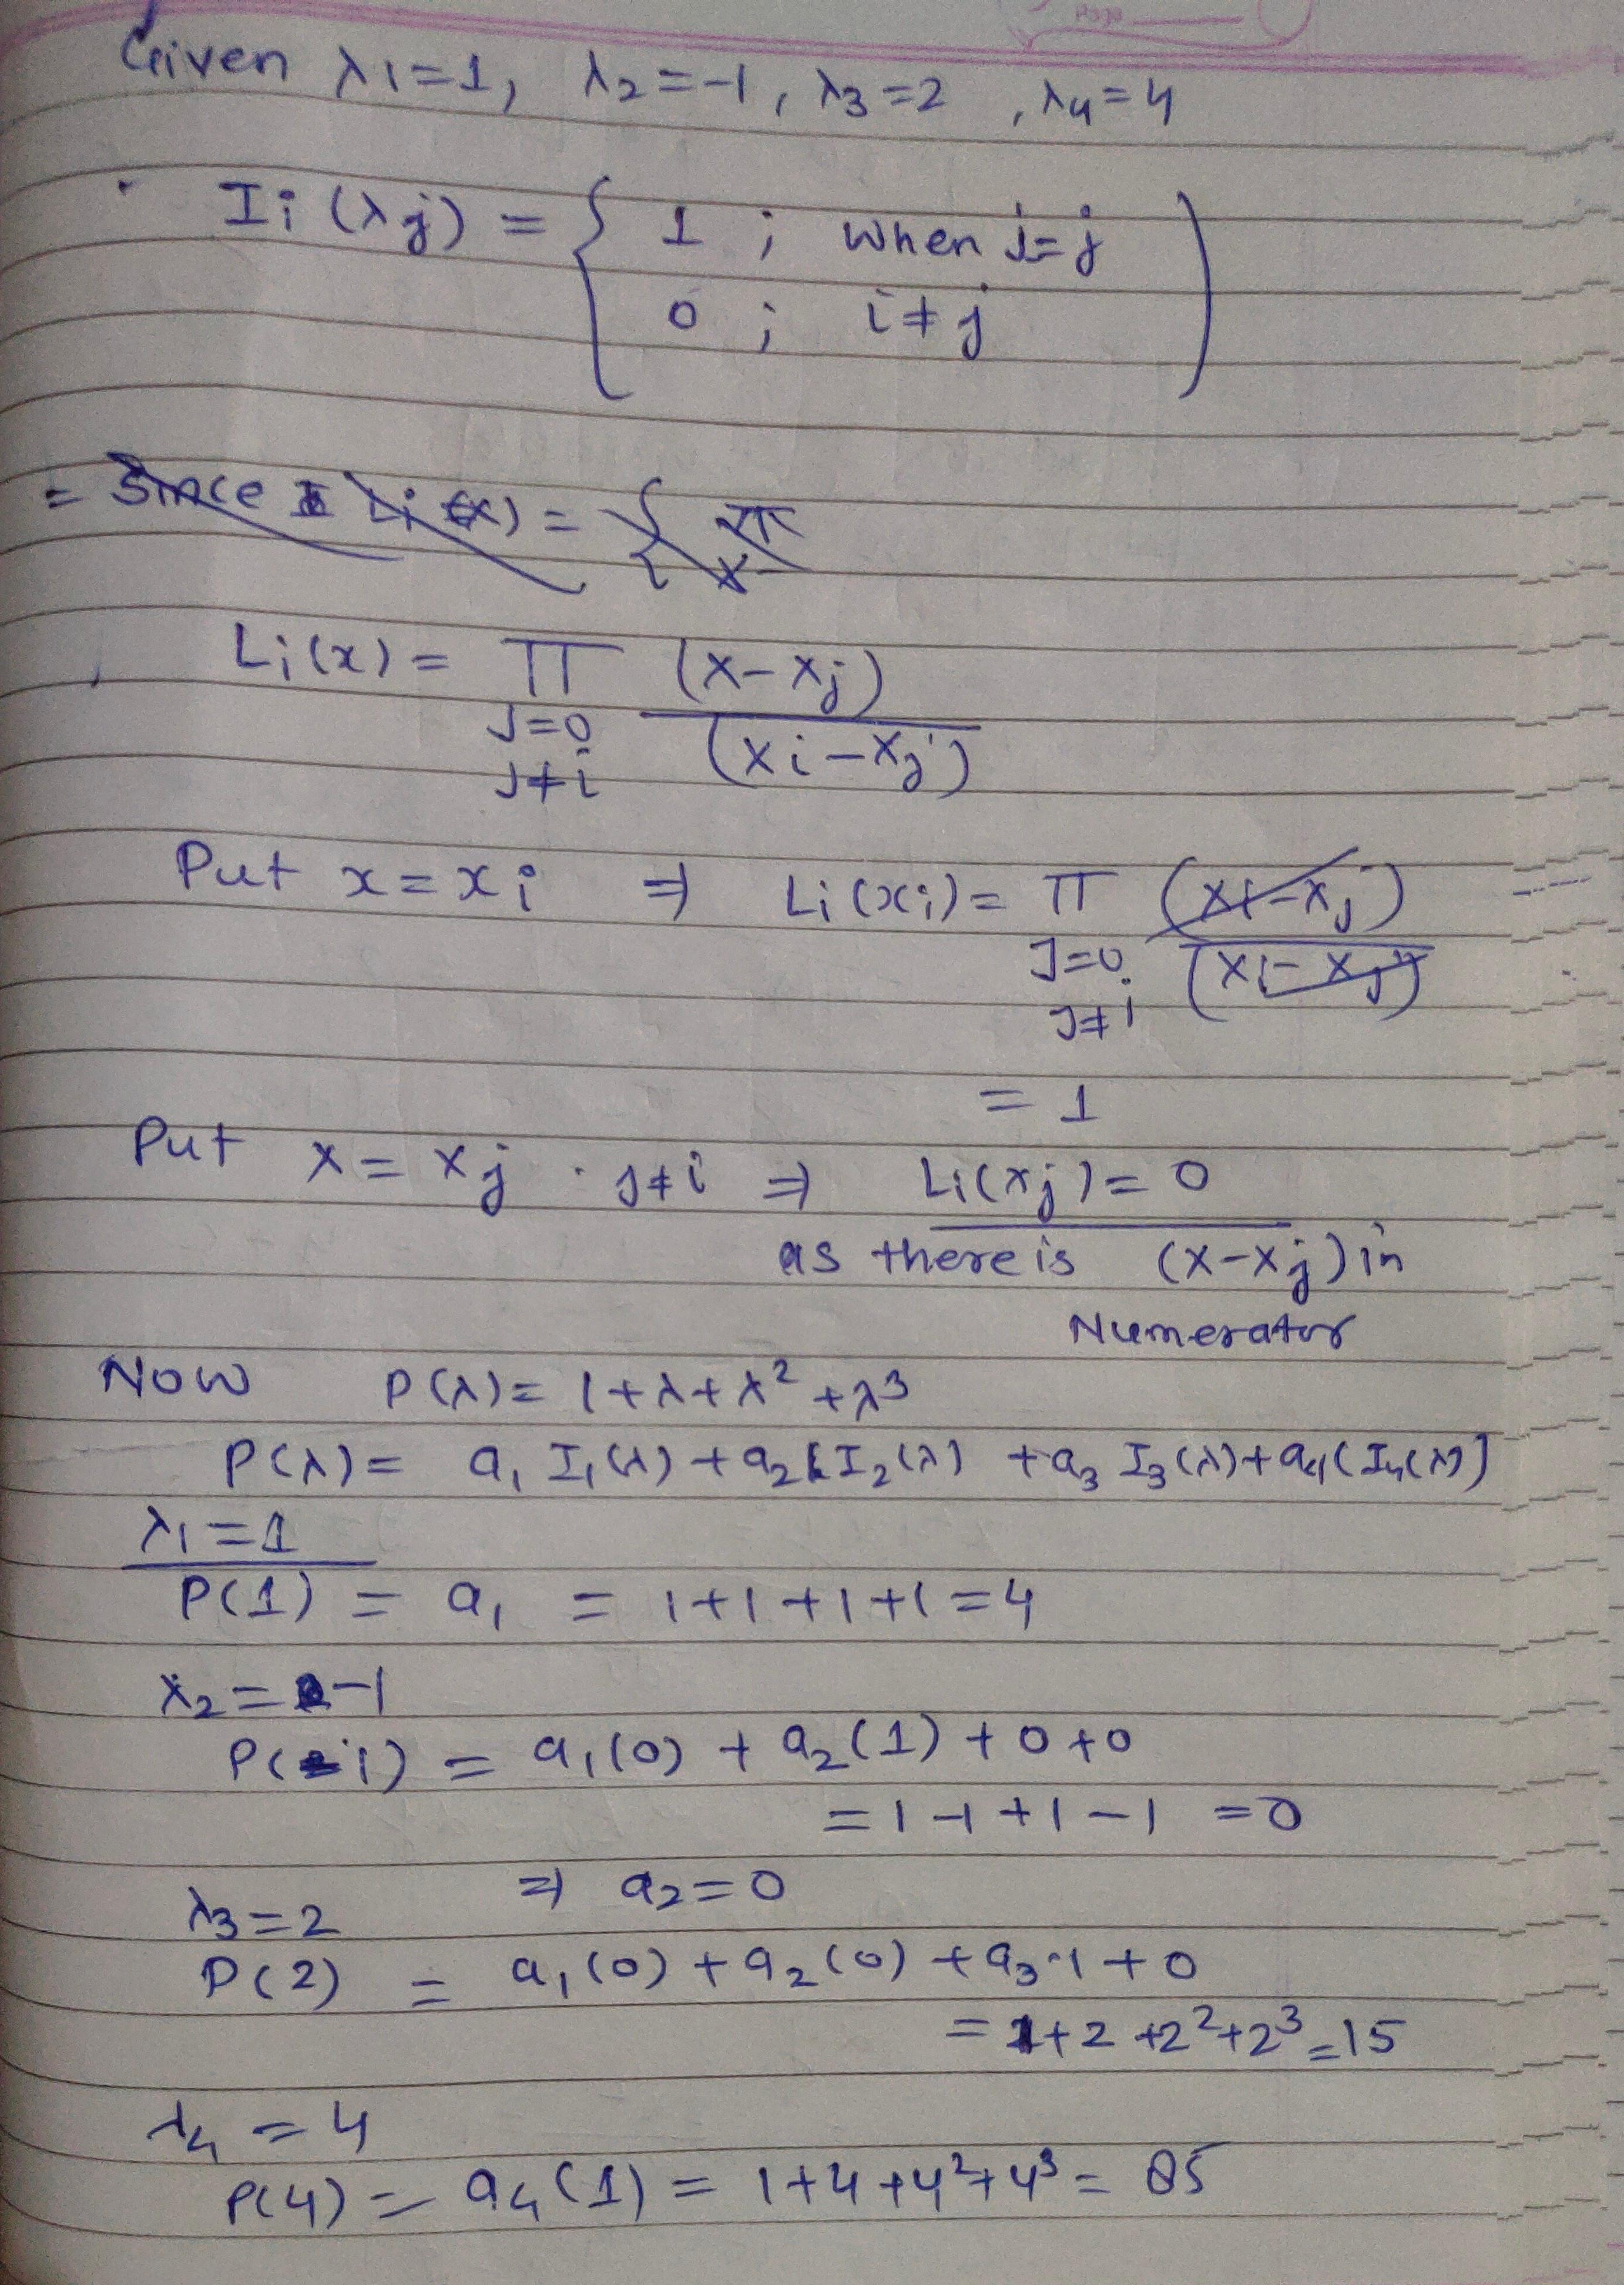 Page
Given λ1=1, λ2=-1, λ3=2, λ4=4
Ii(λj) = { 1 ; when i=j
0 ; i≠j )
= Since Li(x) = { π
x-
Li(x) = π (x-xj)
j=0
j≠i (xi-xj)
Put x=xi ⇒ Li(xi) = π (xi-xj)
j=0 (xi-xj)
j≠i
= 1
Put x=xj . j≠i ⇒ Li(xj)=0
as there is (x-xj) in
Numerator
Now P(λ)= 1+λ+λ²+λ³
P(λ)= a1 I1(λ) + a2[I2(λ) + a3 I3(λ)+a4(I4(λ)]
λ1=1
P(1) = a1 = 1+1+1+1=4
λ2=-1
P(-1) = a1(0) + a2(1)+0+0
=1-1+1-1 =0
⇒ a2=0
λ3=2
P(2) = a1(0)+a2(0)+a3·1+0
=1+2+2²+2³=15
λ4 = 4
P(4) = a4(1) = 1+4+4²+4³= 85